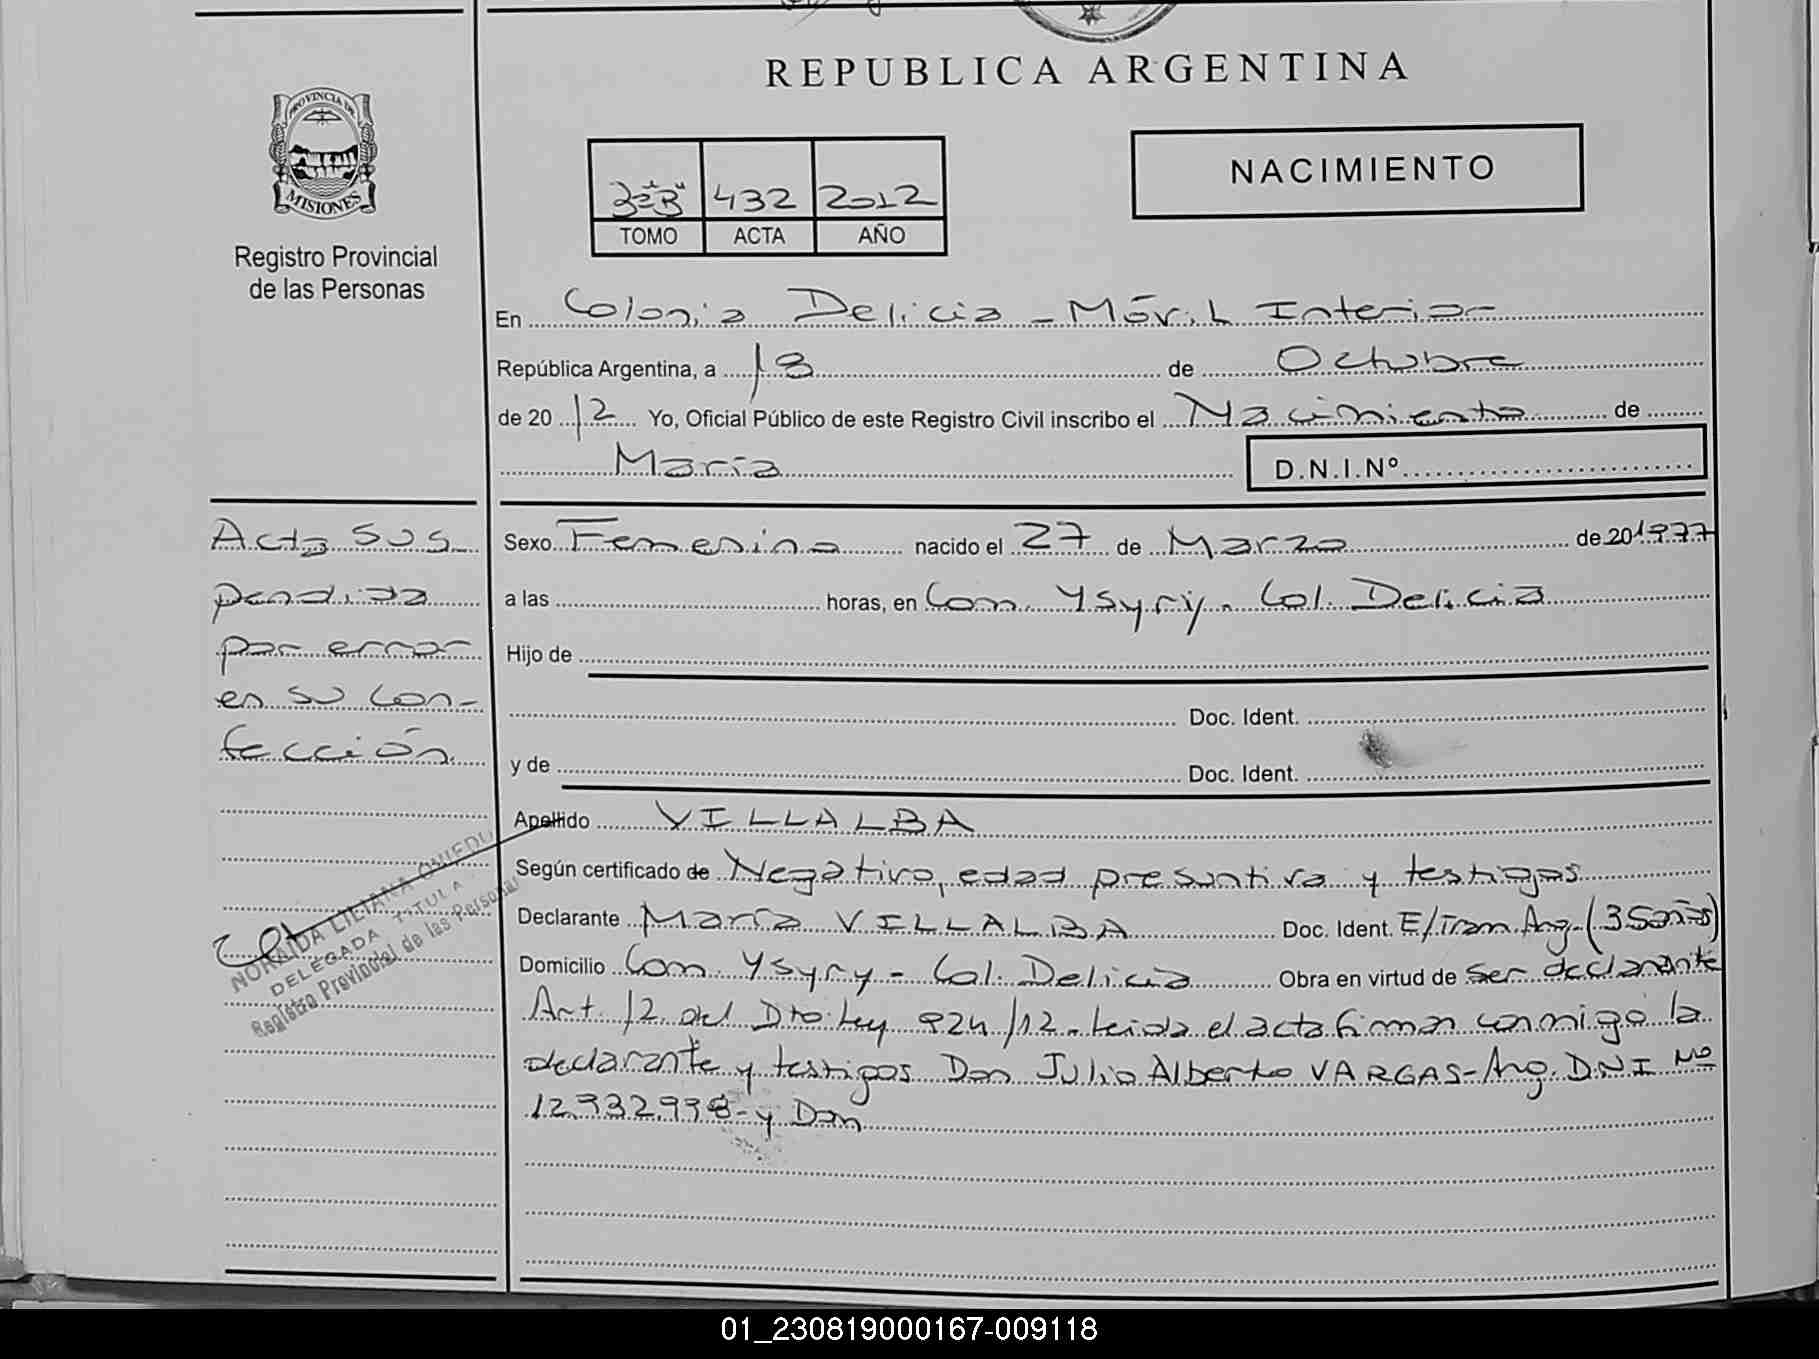 REPUBLICA ARGENTINA
PROVINCIA DE
MISIONES
Registro Provincial
de las Personas
3º"B" 432 2012
TOMO ACTA AÑO
NACIMIENTO
En Colonia Delicia - Móvil Interior
República Argentina, a 18 de Octubre
de 20 12 Yo, Oficial Público de este Registro Civil inscribo el Nacimiento de
María
D.N.I.Nº
Acta sus
pendida
por error
en su con-
fección.
NORAIDA LILIANA OVIEDO
DELEGADA TITULA
Registro Provincial de las Personas
Sexo Femenino nacido el 27 de Marzo de 20 1977
a las horas, en Com. Ysyry - Col. Delicia
Hijo de
Doc. Ident.
y de Doc. Ident.
Apellido VILLALBA
Según certificado de Negativo, edad presuntiva y testigos
Declarante María VILLALBA Doc. Ident. E/Tram. Arg. (35 años)
Domicilio Com. Ysyry - Col. Delicia Obra en virtud de ser declarante
Art. 12 del Dto. Ley 924/12. Leida el acta firman conmigo la
declarante y testigos Don Julio Alberto VARGAS - Arg. DNI Nº
12.932.998 - y Don
01_230819000167-009118